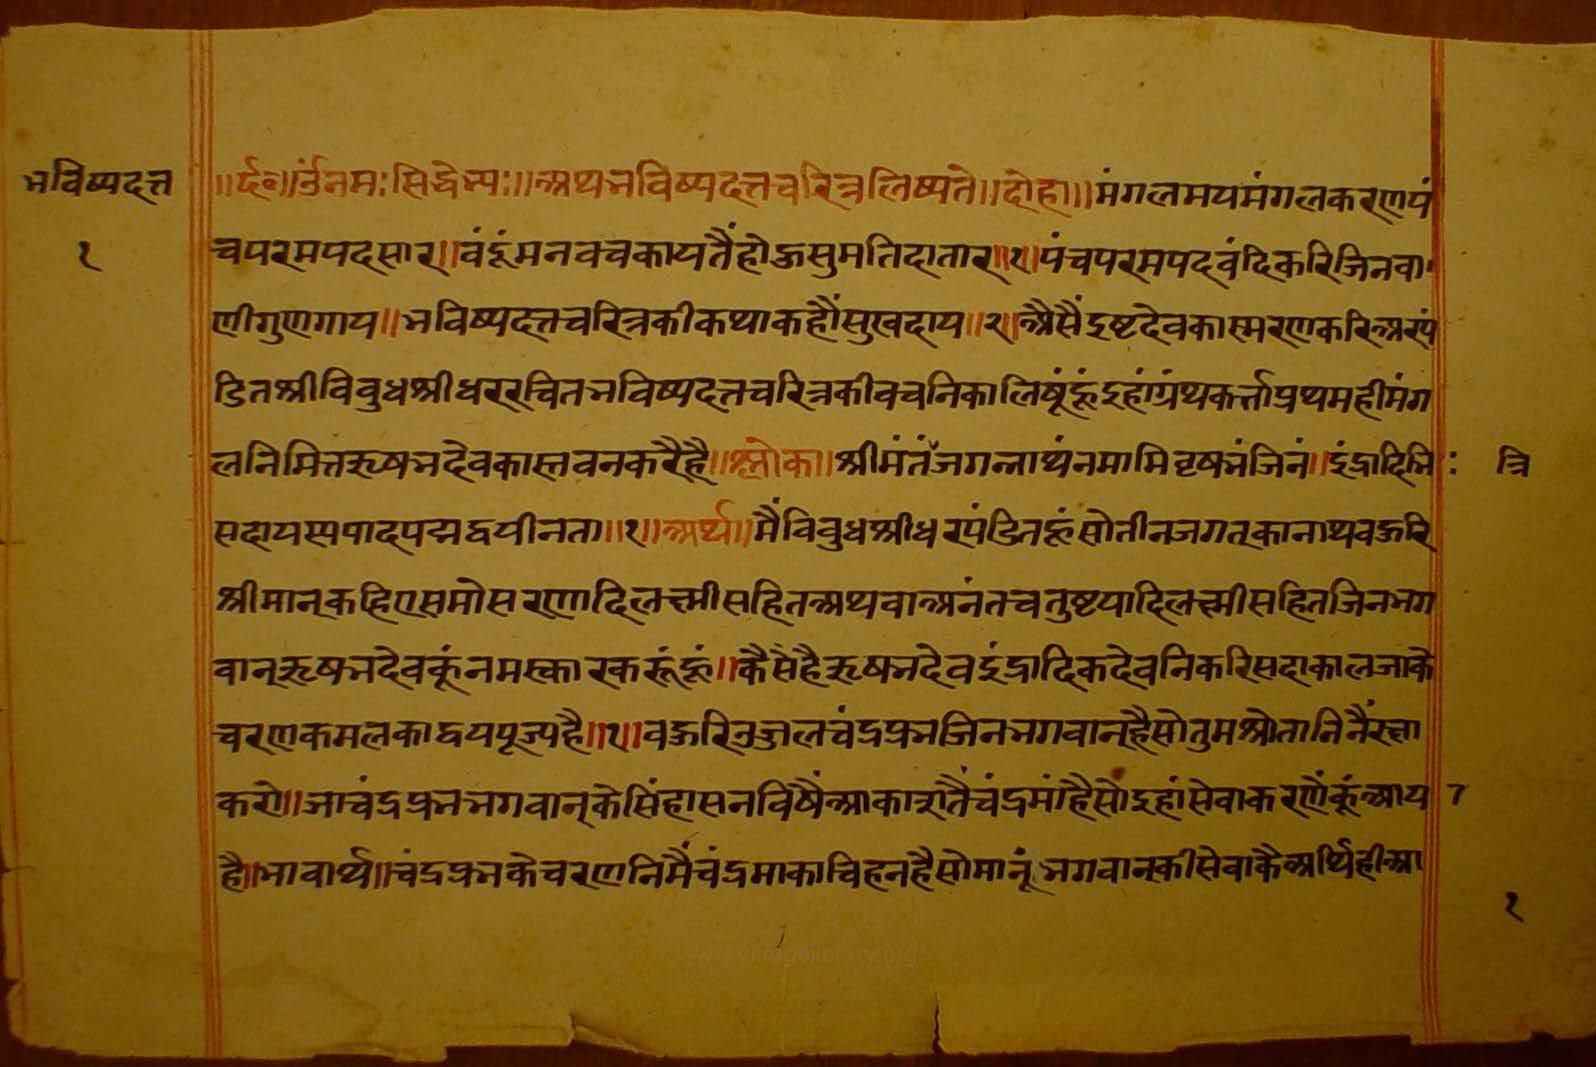 भविष्यदत्त
१
॥र्द०॥ॐनमःसिद्धेभ्यः॥अथभविष्यदत्तचरित्रलिष्यते॥दोहा॥मंगलमयमंगलकरणपं
चपरमपदसार॥वंदूंमनवचकायतैंहोऊसुमतिदातार॥१॥पंचपरमपदवंदिकरिजिनवा
णीगुणगाय॥भविष्यदत्तचरित्रकीकथाकहौंसुखदाय॥२॥अैसैंइष्टदेवकास्मरणकरिअरपं
डितश्रीविबुधश्रीधररचितभविष्यदत्तचरित्रकीवचनिकालिषूंहूंइहांग्रंथकर्त्ताप्रथमहीमंग
लनिमित्तऋषभदेवकास्तवनकरैहै॥श्लोक॥श्रीमंतंजगन्नाथंनमामिवृषभंजिनं॥इंद्रादिभि
सदायस्यपादपद्मद्वयीनता॥१॥अर्थ॥मैंविबुधश्रीधरपंडितहूंसोतीनजगत्कानाथबहुरि
श्रीमान्कहिएसमोसरणादिलक्ष्मीसहितअथवाअनंतचतुष्टयादिलक्ष्मीसहितजिनभग
वान्ऋषभदेवकूंनमस्कारकरूंहूं॥कैसैहैऋषभदेवइंद्रादिकदेवनिकरिसदाकालजाके
चरणकमलकाद्वयपूज्यहै॥१॥बहुरिउज्जलचंद्रप्रभजिनभगवान्हैसोतुमश्रोतानिनैंरक्षा
करो॥जाचंद्रप्रभभगवान्केसिंहासनविषैंआकाशतैंचंद्रमांहैसोंइहांसेवाकरणैंकूंआय
है॥भावार्थ॥चंद्रप्रभकेचरणनिमैंचंद्रमाकाचिहनहैसोमानूंभगवान्कीसेवाकैअर्थिहीआ
:
त्रि
१